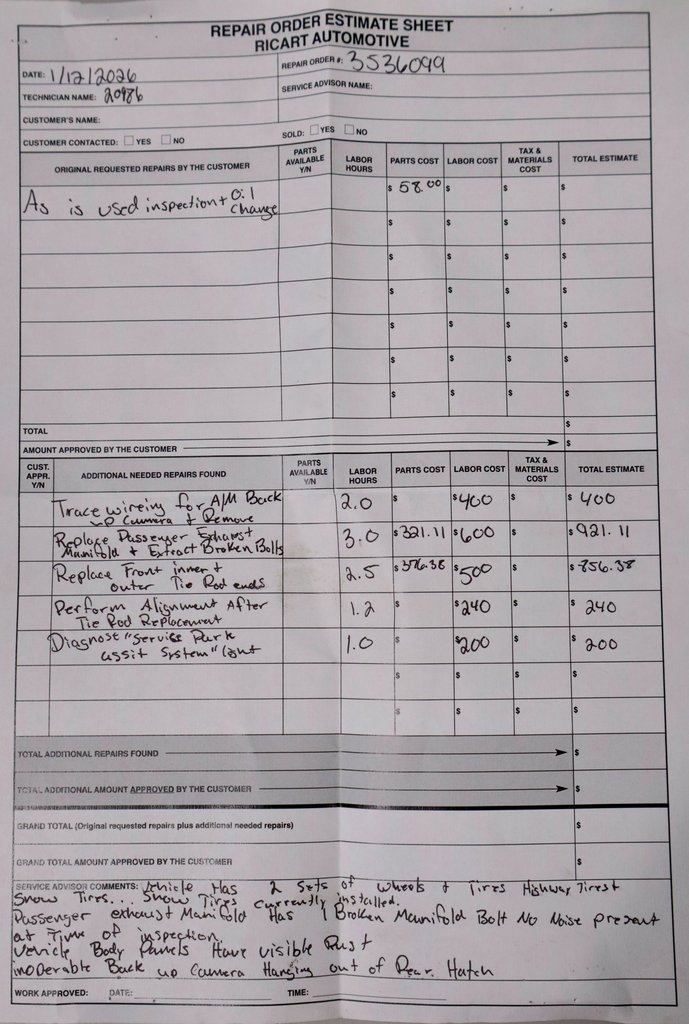 REPAIR ORDER ESTIMATE SHEET
RICART AUTOMOTIVE
DATE: 1/12/2026
REPAIR ORDER #: 3536099
TECHNICIAN NAME: 20986
SERVICE ADVISOR NAME:
CUSTOMER'S NAME:
CUSTOMER CONTACTED: YES NO
SOLD: YES NO
ORIGINAL REQUESTED REPAIRS BY THE CUSTOMER PARTS AVAILABLE Y/N LABOR HOURS PARTS COST LABOR COST TAX & MATERIALS COST TOTAL ESTIMATE
As is used inspection + Oil Change $ 58.00 $ $ $
$ $ $ $
$ $ $ $
$ $ $ $
$ $ $ $
$ $ $ $
$ $ $ $
TOTAL $
AMOUNT APPROVED BY THE CUSTOMER $
CUST. APPR. Y/N ADDITIONAL NEEDED REPAIRS FOUND PARTS AVAILABLE Y/N LABOR HOURS PARTS COST LABOR COST TAX & MATERIALS COST TOTAL ESTIMATE
Trace wireing for A/M Back
up Camera + Remove 2.0 $ $400 $ $ 400
Replace Passenger Exhaust
Manifold + Extract Broken Bolts 3.0 $321.11 $600 $ $921.11
Replace Front inner +
outer Tie Rod ends 2.5 $ $500 $ $856.38
Perform Alignment After
Tie Rod Replacement 1.2 $ $240 $ $ 240
Diagnose "Service Park
assit System" light 1.0 $ $200 $ $ 200
$ $ $ $
$ $ $ $
TOTAL ADDITIONAL REPAIRS FOUND $
TOTAL ADDITIONAL AMOUNT APPROVED BY THE CUSTOMER $
GRAND TOTAL (Original requested repairs plus additional needed repairs) $
GRAND TOTAL AMOUNT APPROVED BY THE CUSTOMER $
SERVICE ADVISOR COMMENTS: Vehicle Has 2 Sets of wheels + Tires Highway Tires +
Snow Tires... Snow Tires currently installed.
Passenger exhaust Manifold Has 1 Broken Manifold Bolt No Noise present
at Time of inspection
Vehicle Body Panels Have visible Rust
inoperable Back up Camera Hanging out of Rear Hatch
WORK APPROVED: DATE: TIME: